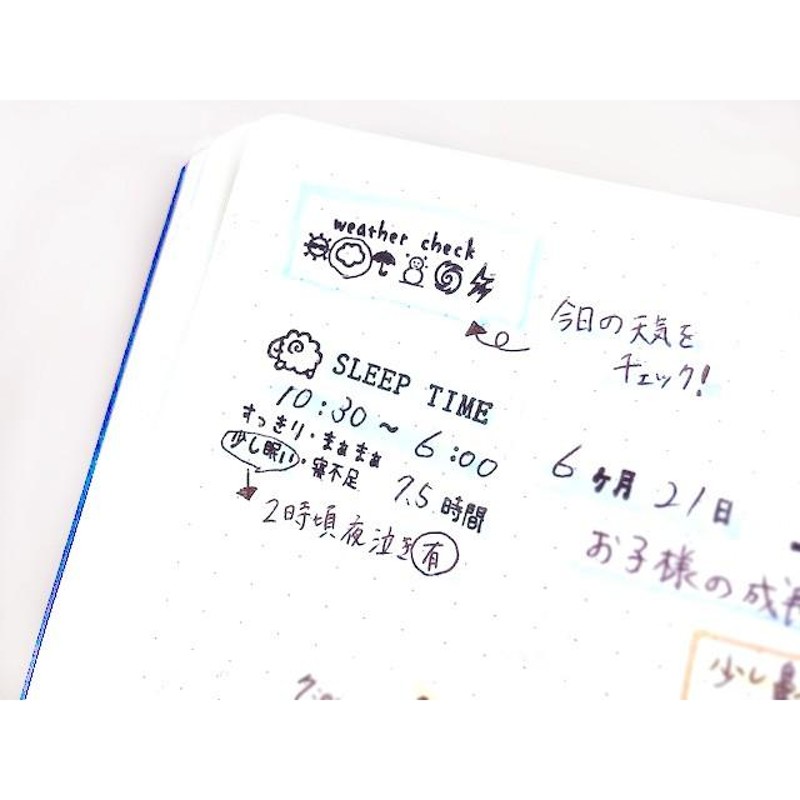 weather check
今日の天気を
チェック!
SLEEP TIME
10:30 ~ 6:00
すっきり・まぁまぁ
少し眠い・寝不足
7.5時間
2時頃夜泣き有
6ヶ月21日
お子様の成長
少し